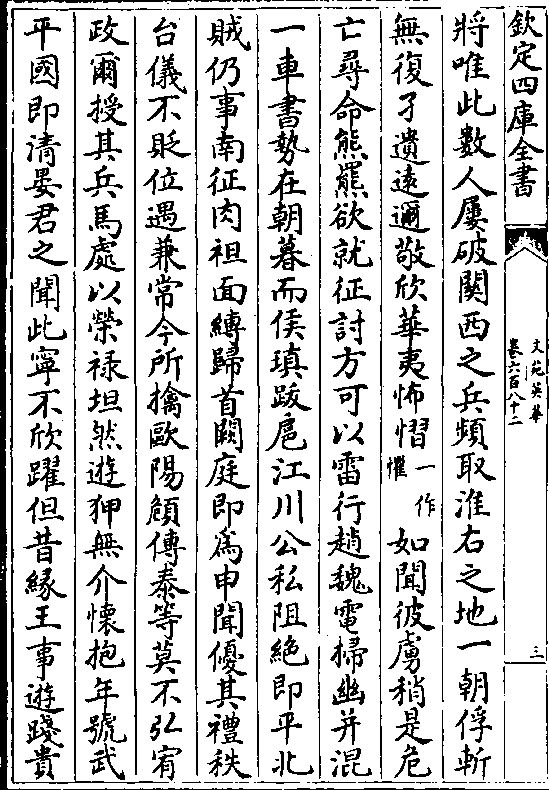 欽定四庫全書
文苑英華
卷六百八十二
三
將唯此數人屢破關西之兵頻取淮右之地一朝俘斬
無復孑遺遠邇敬欣華夷怖慴一作懼如聞彼虜稍是危
亡尋命熊羆欲就征討方可以雷行趙魏電掃幽并混
一車書勢在朝暮而侯瑱跋扈江川公私阻絶即平北
賊仍事南征肉袒面縛歸首闕庭即為申聞優其禮秩
台儀不貶位遇兼常今所擒歐陽頠傅泰等莫不弘宥
政爾授其兵馬處以榮禄坦然遊狎無介懷抱年號武
平國即清晏君之聞此寧不欣躍但昔緣王事遊踐貴